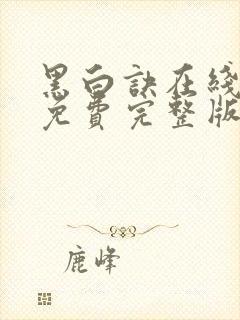 黑白訣在綫
免費完整版
鹿峰